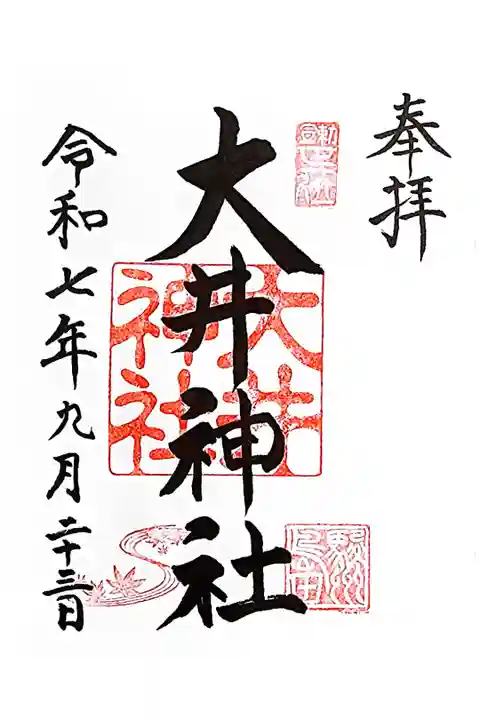 奉拝
大井神社
大井神社
令和七年九月二十三日